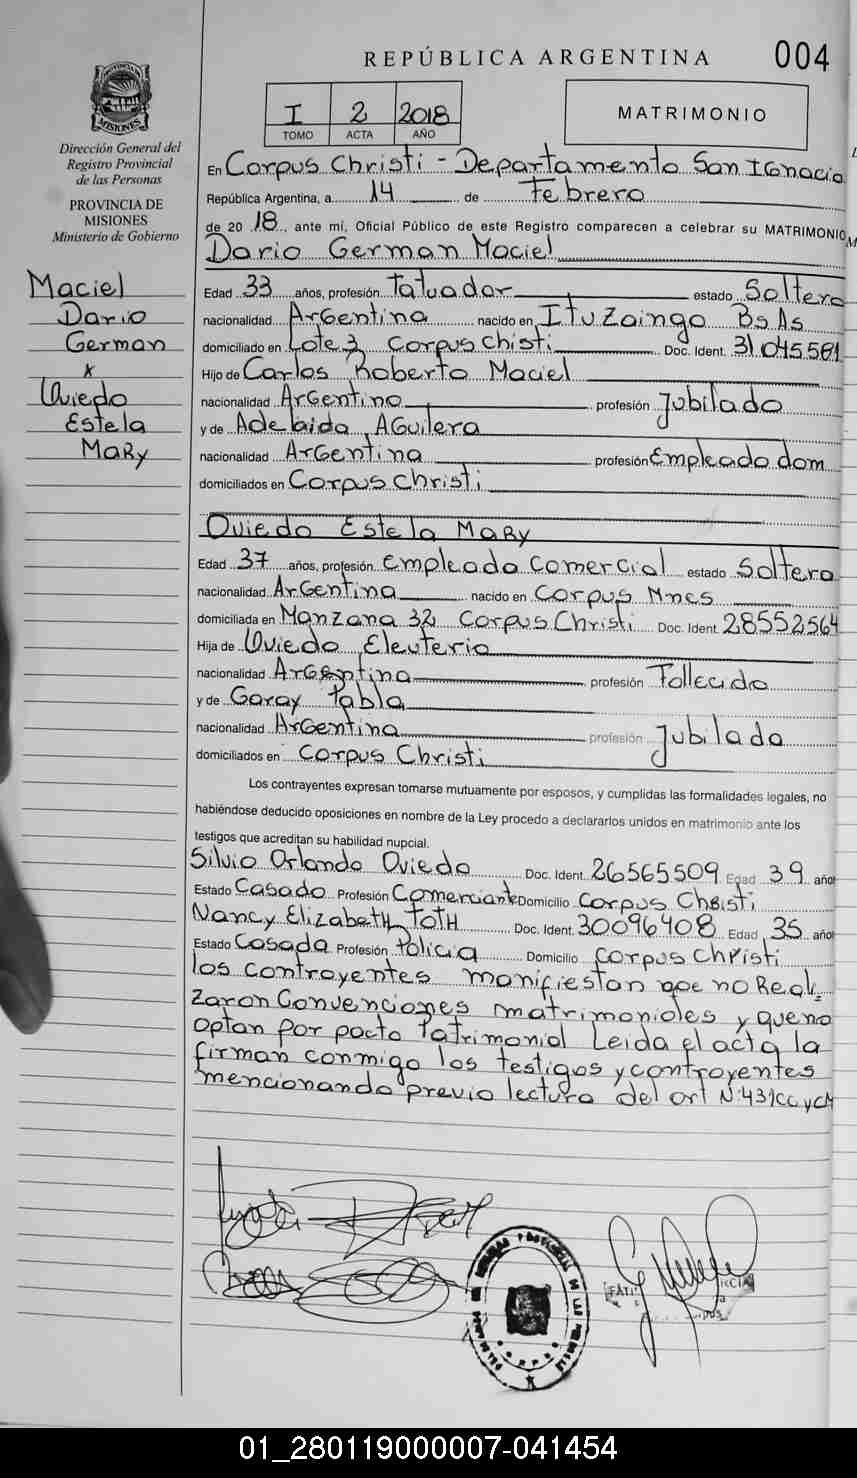 REPÚBLICA ARGENTINA 004
PROVINCIA DE MISIONES
Dirección General del
Registro Provincial
de las Personas
PROVINCIA DE
MISIONES
Ministerio de Gobierno
I 2 2018
TOMO ACTA AÑO
MATRIMONIO
Maciel
Dario
German
x
Oviedo
Estela
Mary
En Corpus Christi - Departamento San Ignacio
República Argentina, a 14 de Febrero
de 20 18, ante mí, Oficial Público de este Registro comparecen a celebrar su MATRIMONIO
Dario German Maciel
Edad 33 años, profesión Tatuador estado Soltero
nacionalidad Argentina nacido en Ituzaingo Bs As
domiciliado en Lote 3 Corpus Chisti Doc. Ident. 31.045.561
Hijo de Carlos Roberto Maciel
nacionalidad Argentino profesión Jubilado
y de Adelaida Aguilera
nacionalidad Argentina profesión Empleado dom
domiciliados en Corpus Christi
Oviedo Estela Mary
Edad 37 años, profesión empleada comercial estado Soltera
nacionalidad Argentina nacido en Corpus Mnes
domiciliada en Manzana 32 Corpus Christi Doc. Ident. 28552564
Hija de Oviedo Eleuterio
nacionalidad Argentina profesión Fallecido
y de Garay Pabla
nacionalidad Argentina profesión Jubilada
domiciliados en Corpus Christi
Los contrayentes expresan tomarse mutuamente por esposos, y cumplidas las formalidades legales, no
habiéndose deducido oposiciones en nombre de la Ley procedo a declararlos unidos en matrimonio ante los
testigos que acreditan su habilidad nupcial.
Silvio Orlando Oviedo Doc. Ident. 26565509 Edad 39 años
Estado Casado Profesión Comerciante Domicilio Corpus Christi
Nancy Elizabeth Toth Doc. Ident. 30096408 Edad 35 años
Estado Casada Profesión Policia Domicilio Corpus Christi
los contrayentes manifiestan que no Reali
zaron Convenciones matrimoniales y que no
optan por pacto Patrimonial Leida el acta la
firman conmigo los testigos y contrayentes
mencionando previo lectura del art N:431CCyCN
01_280119000007-041454